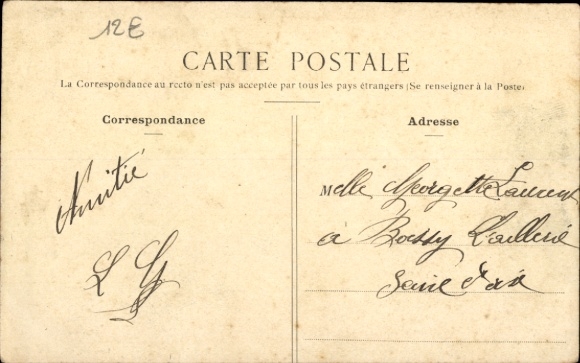 12€
CARTE POSTALE
La Correspondance au recto n'est pas acceptée par tous les pays étrangers (Se renseigner à la Poste)
Correspondance
Adresse
Amitié
L G
Melle Georgette Laurent
à Boissy L'aillerie
Seine & Oise